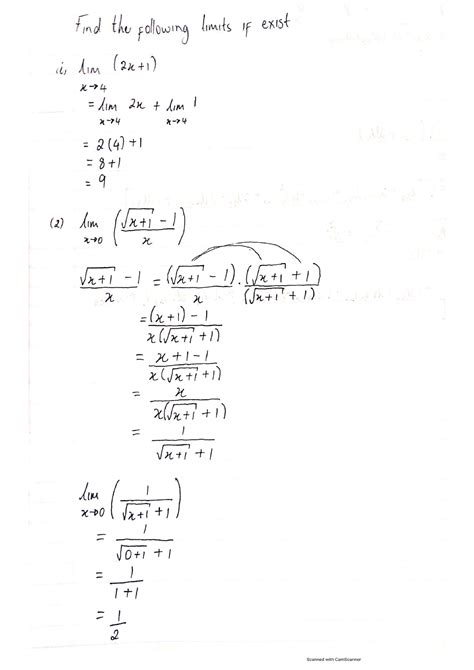 Find the following limits if exist
i, lim x→4 (2x+1)
= lim x→4 2x + lim x→4 1
= 2(4)+1
= 8+1
= 9
(2) lim x→0 ((√(x+1) - 1)/x)
(√(x+1) - 1)/x = (√(x+1) - 1)/x · (√(x+1) + 1)/(√(x+1) + 1)
= ((x+1) - 1)/(x(√(x+1) + 1))
= (x+1-1)/(x(√(x+1) + 1))
= x/(x(√(x+1) + 1))
= 1/(√(x+1) + 1)
lim x→0 (1/(√(x+1) + 1))
= 1/(√(0+1) + 1)
= 1/(1+1)
= 1/2
Scanned with CamScanner